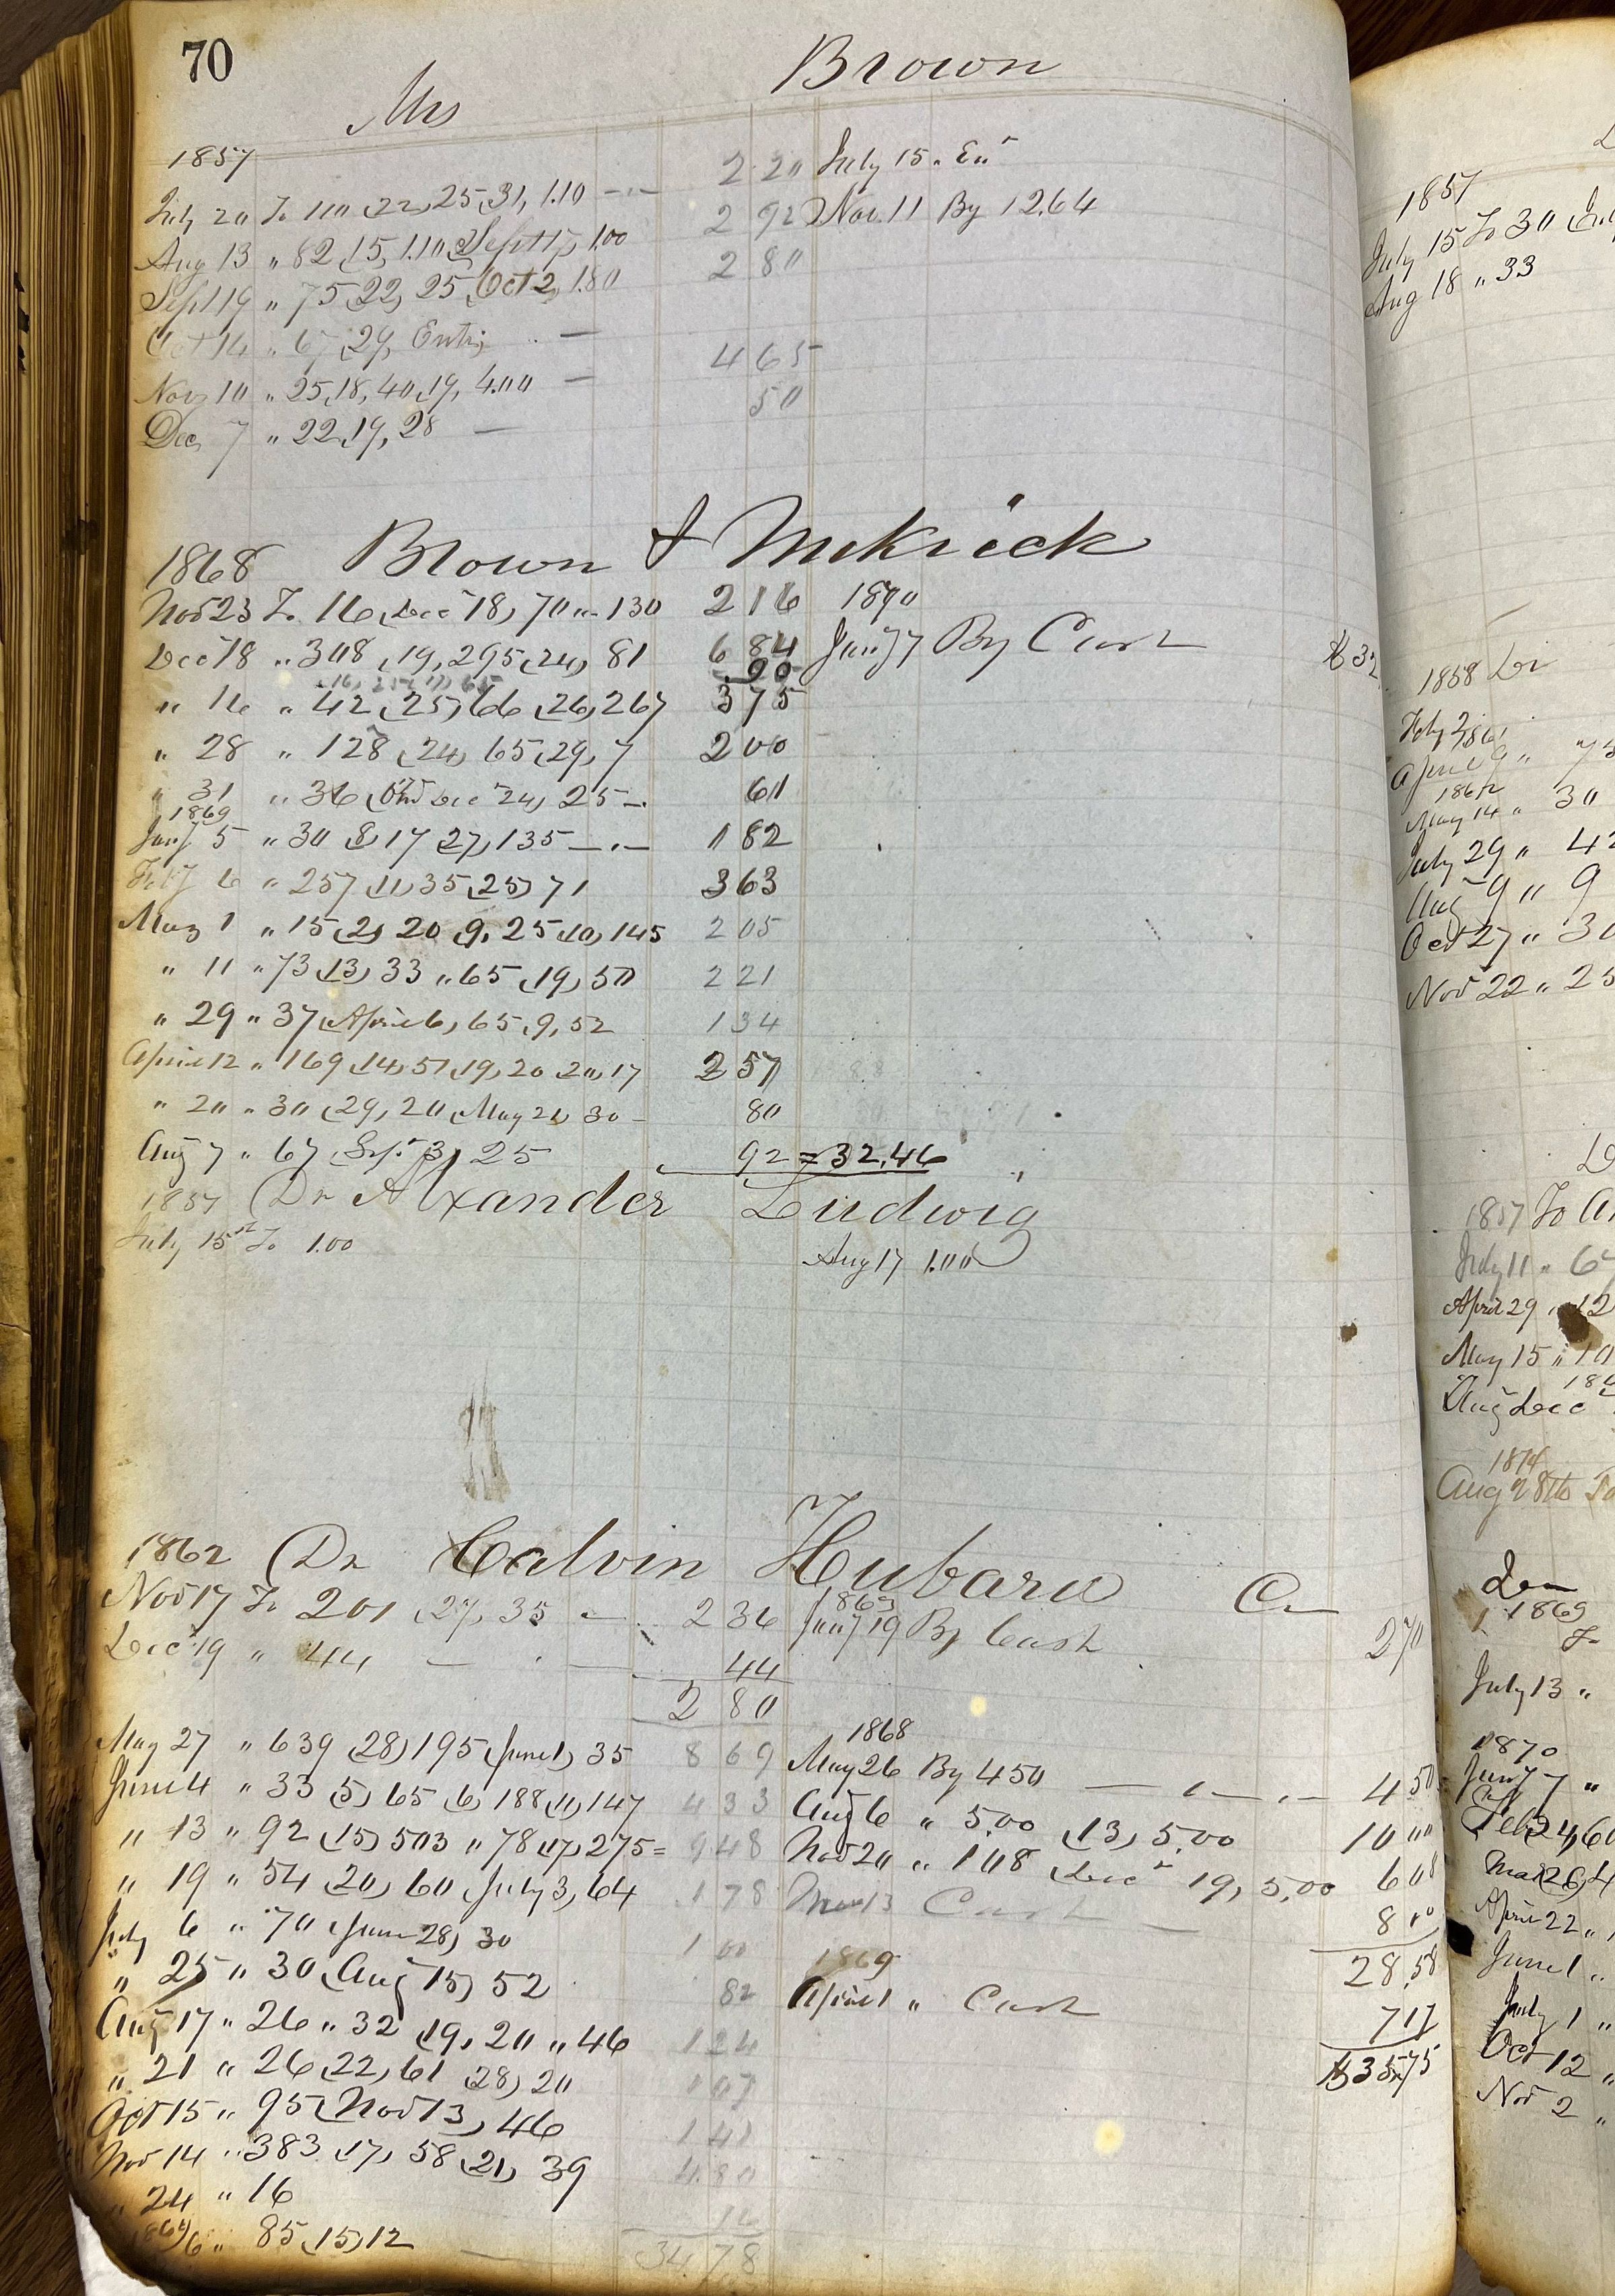 70
Mrs Brown
1857
July 20 To 1.10 (22) 25 (31, 1.10 2 20 July 15 " En
Aug 13 " 82 (15, 1.10 (Sept 17, 1.00 2 92 Nov. 11 By 12.64
Sept 19 " 75 (22, 25 (Oct 2, 1.80 2 80
Oct 14 " 67 (29,
Nov 10 " 25 (18, 40 (19, 4.00 4 65
Dec 7 " 22 (19, 28 50
Brown & McKrick
1868
Nov 23 To 16 (Dec 18) 70 " 130 2 16 1870
Dec 18 " 308 (19, 295 (24) 81 6 84 Jany 7 By Cash
.90
" 16 " 42 (25) 66 (26) 267 3 75
" 28 " 128 (24) 65 (29, 7 2 00
" 31 " 36 (Dec 24) 25 61
1869
Jany 5 " 30 (8) 17 (27, 135 1 82
Feby 6 " 257 (11) 35 (25) 71 3 63
Mar 1 " 15 (2) 20 (9, 25 (10) 145 2 05
" 11 " 73 (13) 33 " 65 (19) 50 2 21
" 29 " 37 (April 6) 65 (9, 52 1 34
April 12 " 169 (14) 51 (19, 20 (20) 17 2 57
" 20 " 30 (29, 20 (May 21) 30 80
Aug 7 " 67 (Sept 3) 25 92 = 32.46
1857 (Dr Alxander Ludwig
July 15 To 1.00
Aug 17 1.00
1862 (Dr Calvin Hubard Cr
Nov 17 To 201 (27, 35 2 36 1863 Jany 19 By Cash 2 70
Dec 19 " 44 44
2 80
1868
May 27 " 639 (28) 195 (June 1) 35 8 69 May 26 By 450 4 50
June 4 " 33 (5) 65 (6) 188 (11) 147 4 33 Aug 6 " 5.00 (13) 5.00 10 00
" 13 " 92 (15) 503 " 78 (17) 275 = 9 48 Nov 20 " 108 (Dec 19, 5.00 6 08
" 19 " 54 (20) 60 (July 3, 64 1 78 Mar 13 Cash 8 00
July 6 " 70 (June 28) 30 1 00 28.58
1869
" 25 " 30 (Aug 15) 52 82 April 1 " Cash 7 17
Aug 17 " 26 " 32 (19, 20 " 46 1 24 $35.75
" 21 " 26 (22) 61 (28) 20 1 07
Oct 15 " 95 (Nov 13) 46 1 41
Nov 14 " 383 (17) 58 (21) 39 4.80
" 24 " 16 16
6 " 85 (15) 12
34 78
1857
July 15 To 30
Aug 18 " 33
1858 Dr
April 9 "
May 14 " 30
July 29 " 42
Aug 9 " 9
Oct 27 " 30
Nov 22 " 25
1857 To
July 11 "
April 29 " 12
May 15 " 10
Aug Dec
1874
Aug 28th To
1869
To
July 13 "
1870
Jany 7 "
Feb 24, 60
Mar 26, 4
April 22 "
June 1 "
July 1 "
Oct 12 "
Nov 2 "